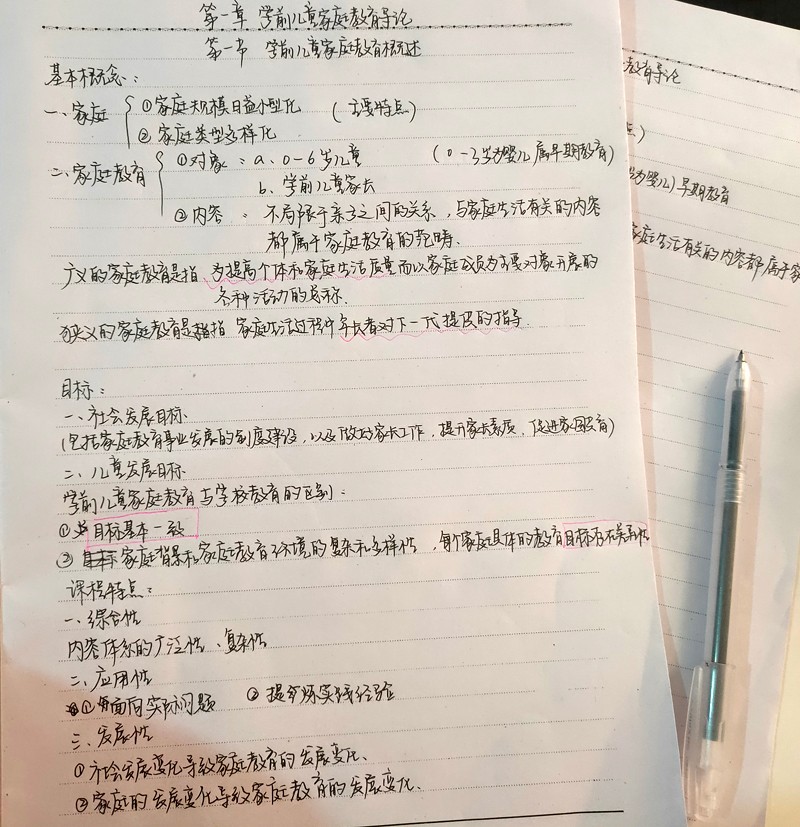 第一章 学前儿童家庭教育导论
第一节 学前儿童家庭教育概述
基本概念：
一、家庭 ①家庭规模日益小型化 （主要特点）
②家庭类型多样化
二、家庭教育 ①对象：a、0-6岁儿童 （0-3岁为婴儿属早期教育）
b、学前儿童家长
②内容：不局限于亲子之间的关系，与家庭生活有关的内容
都属于家庭教育的范畴.
广义的家庭教育是指 为提高个体和家庭生活质量而以家庭成员为主要对象开展的
各种活动的总称.
狭义的家庭教育是指 家庭生活过程中年长者对下一代提供的指导
目标：
一、社会发展目标
（包括家庭教育事业发展的制度建设，以及做好家长工作，提升家长素质、促进家园共育）
二、儿童发展目标
学前儿童家庭教育与学校教育的区别：
①目标基本一致
②家庭背景和家庭教育环境的复杂和多样性，每个家庭具体的教育目标存在差异性
课程特点：
一、综合性
内容体系的广泛性、复杂性
二、应用性
①面向实际问题 ②提炼实践经验
三、发展性
①社会发展变化导致家庭教育的发展变化、
②家庭的发展变化导致家庭教育的发展变化.
教育导论
点）
岁为婴儿）早期教育
家庭生活有关的内容都属于家